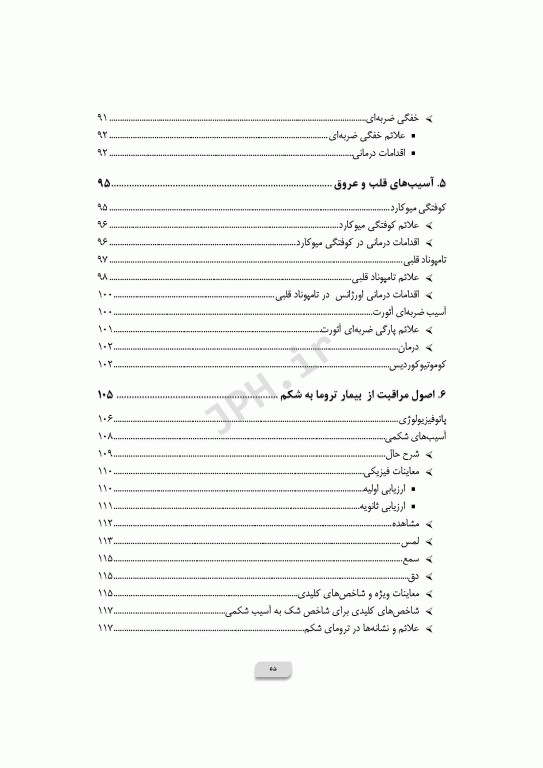 ➢ خفگی ضربه‌ای ........ ۹۱
▪ علائم خفگی ضربه‌ای ........ ۹۲
▪ اقدامات درمانی ........ ۹۲
۵. آسیب‌های قلب و عروق ........ ۹۵
کوفتگی میوکارد ........ ۹۵
➢ علائم کوفتگی میوکارد ........ ۹۶
➢ اقدامات درمانی در کوفتگی میوکارد ........ ۹۶
تامپوناد قلبی ........ ۹۷
➢ علائم تامپوناد قلبی ........ ۹۸
➢ اقدامات درمانی اورژانس در تامپوناد قلبی ........ ۱۰۰
آسیب ضربه‌ای آئورت ........ ۱۰۰
➢ علائم پارگی ضربه‌ای آئورت ........ ۱۰۱
➢ درمان ........ ۱۰۲
کوموتیوکوردیس ........ ۱۰۲
۶. اصول مراقبت از بیمار تروما به شکم ........ ۱۰۵
پاتوفیزیولوژی ........ ۱۰۶
آسیب‌های شکمی ........ ۱۰۸
➢ شرح حال ........ ۱۰۹
➢ معاینات فیزیکی ........ ۱۱۰
▪ ارزیابی اولیه ........ ۱۱۰
▪ ارزیابی ثانویه ........ ۱۱۱
➢ مشاهده ........ ۱۱۲
➢ لمس ........ ۱۱۳
➢ سمع ........ ۱۱۵
➢ دق ........ ۱۱۵
➢ معاینات ویژه و شاخص‌های کلیدی ........ ۱۱۵
➢ شاخص‌های کلیدی برای شاخص شک به آسیب شکمی ........ ۱۱۷
➢ علائم و نشانه‌ها در ترومای شکم ........ ۱۱۷
JPH.ir